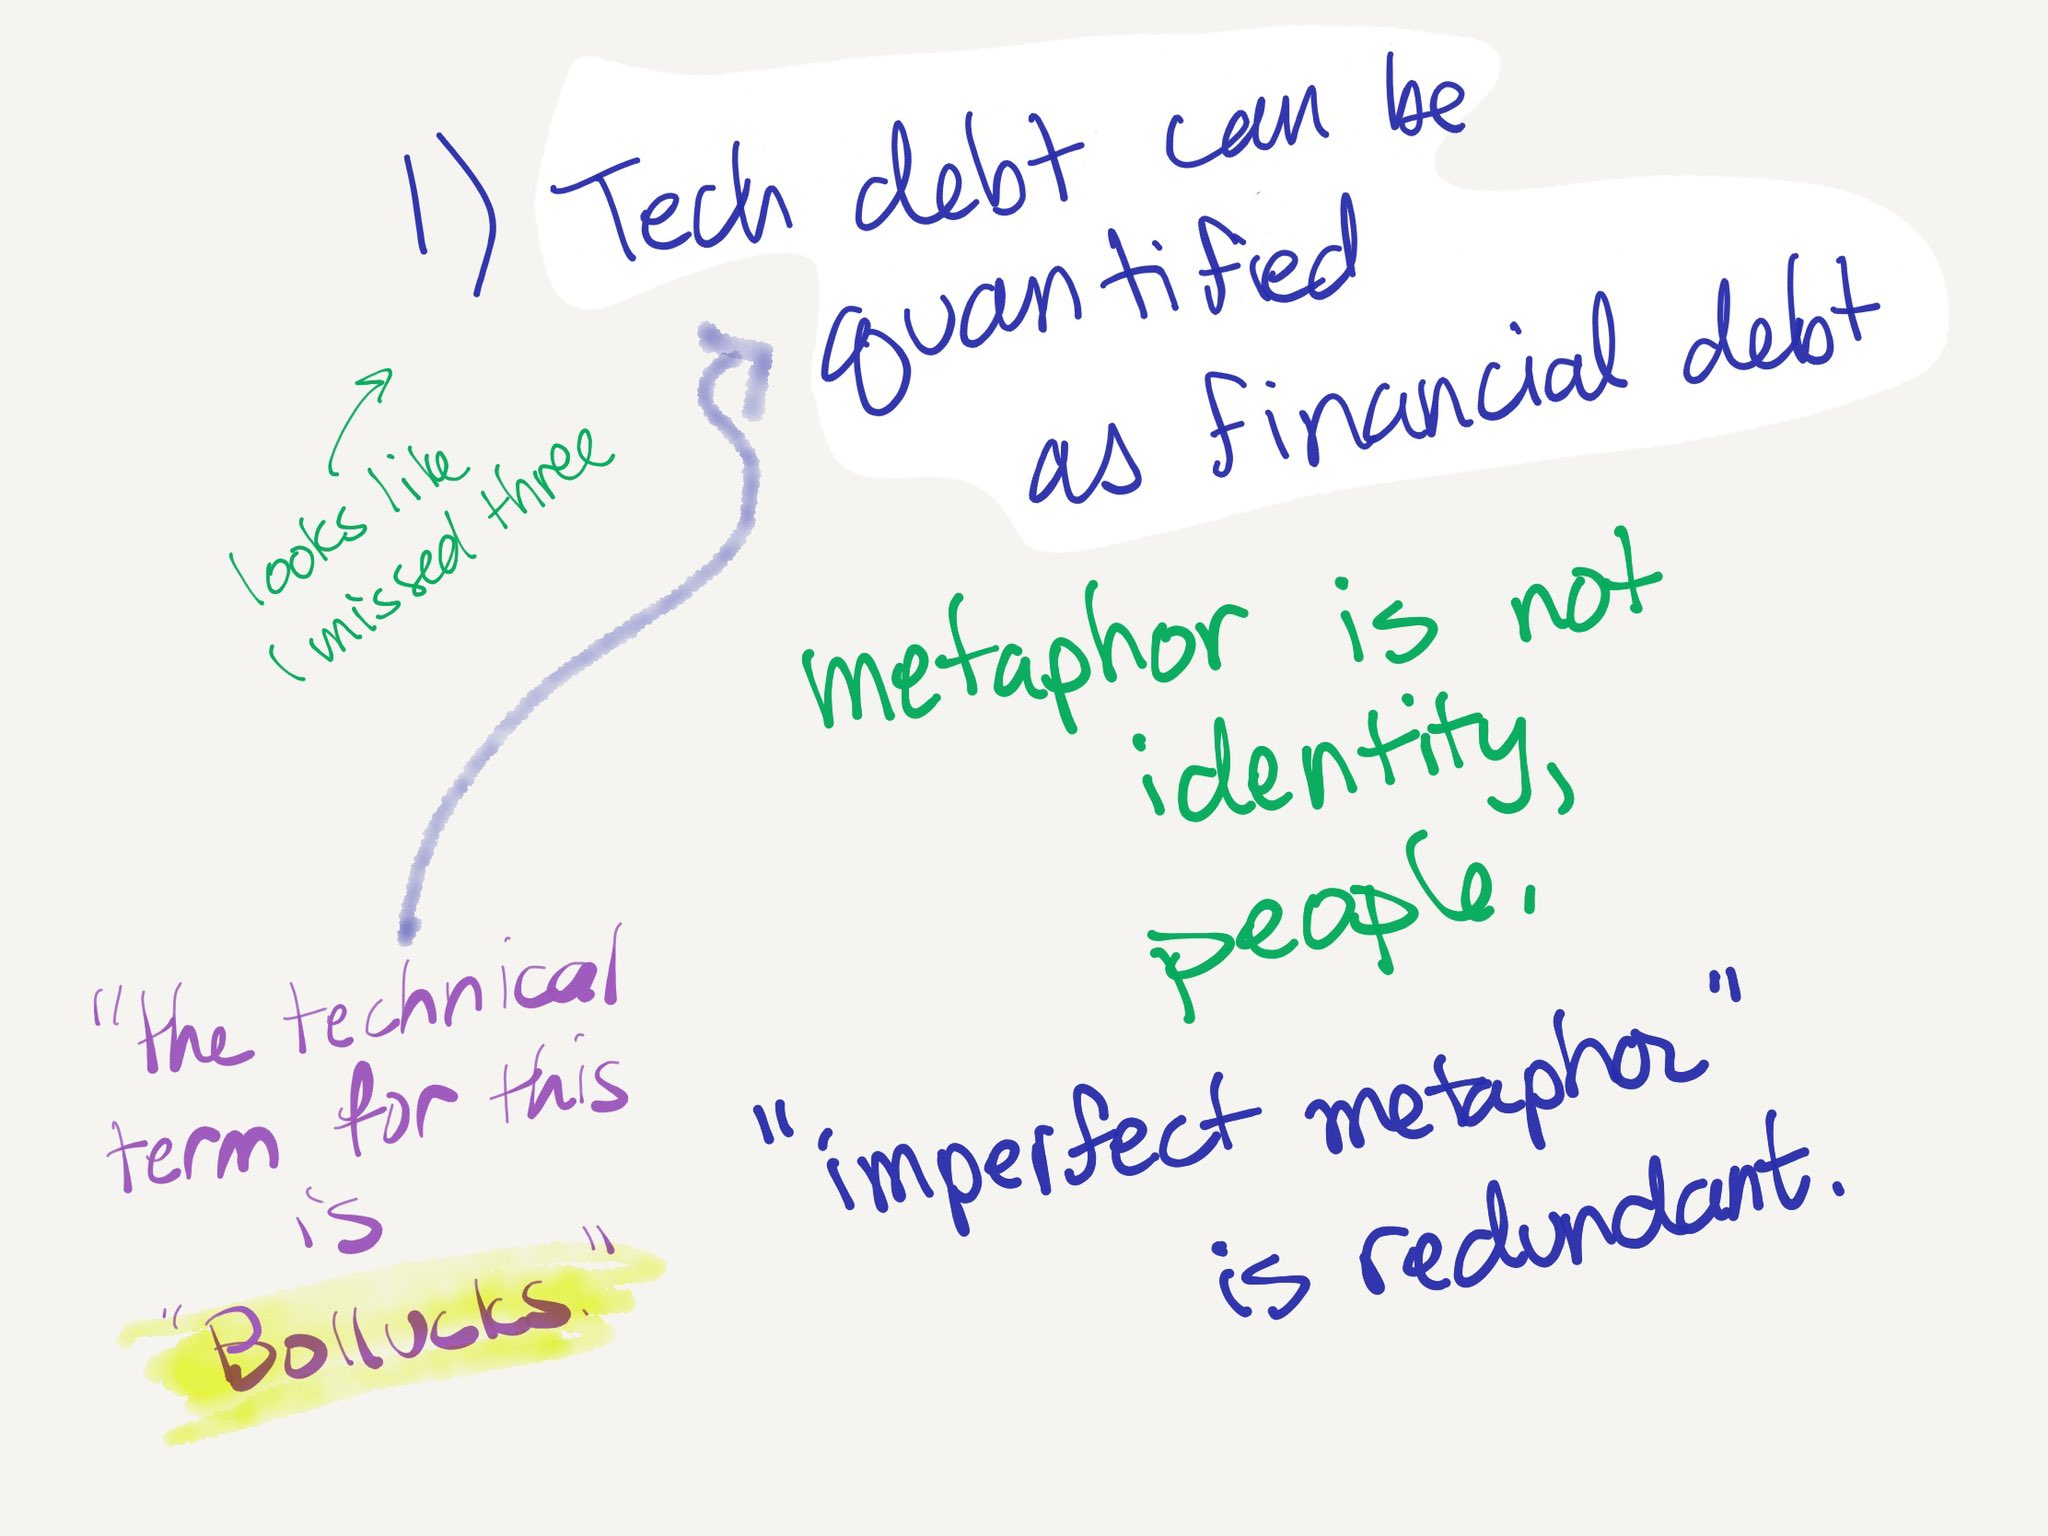 1) Tech debt can be
quantified
as financial debt
looks like
I missed three
metaphor is not
identity,
people.
"the technical
term for this
is
"Bollucks."
"imperfect metaphor"
is redundant.